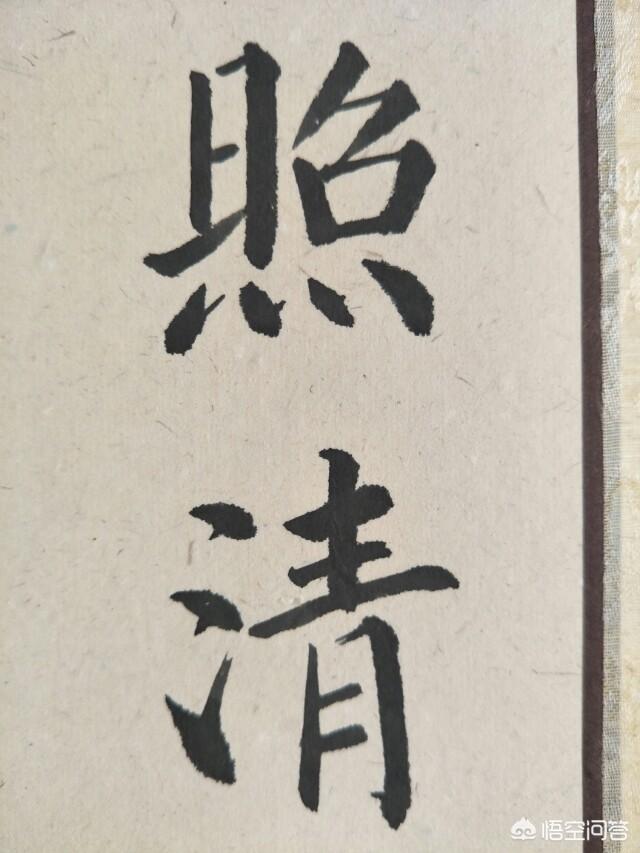 照
清
悟空问答